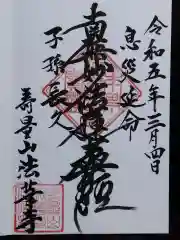 令和五年三月四日
息災延命
南無妙法蓮華経
子孫長久
寿量山法華寺